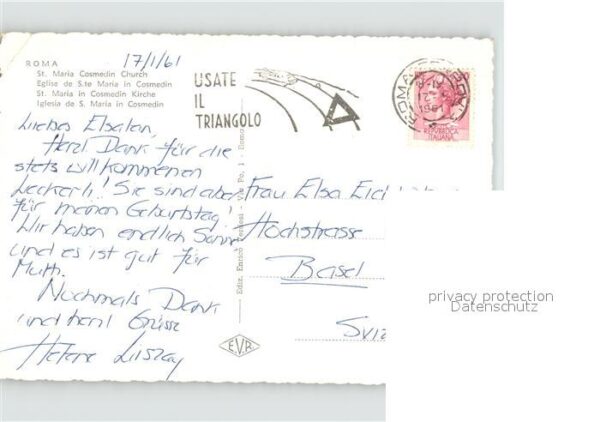 17/1/61
ROMA
St. Maria Cosmedin Church
Eglise de S.te Maria in Cosmedin
St. Maria in Cosmedin Kirche
Iglesia de S. Maria in Cosmedin
USATE
IL
TRIANGOLO
ROMA
REPUBBLICA
ITALIANA
Liebes
Herzl Dank für die
stets willkommenen
Leckerli! Sie sind aber
für meinen Geburtstag!
Wir haben endlich Sonne
und es ist gut für
Muth.
Nochmals Dank
und herzl Grüsse
Helene
Frau Elsa
Hochstrasse
Basel
Sviz
Ediz. Enrico Verdesi - Via Po, 1 - Roma
E.V.R.
privacy protection
Datenschutz